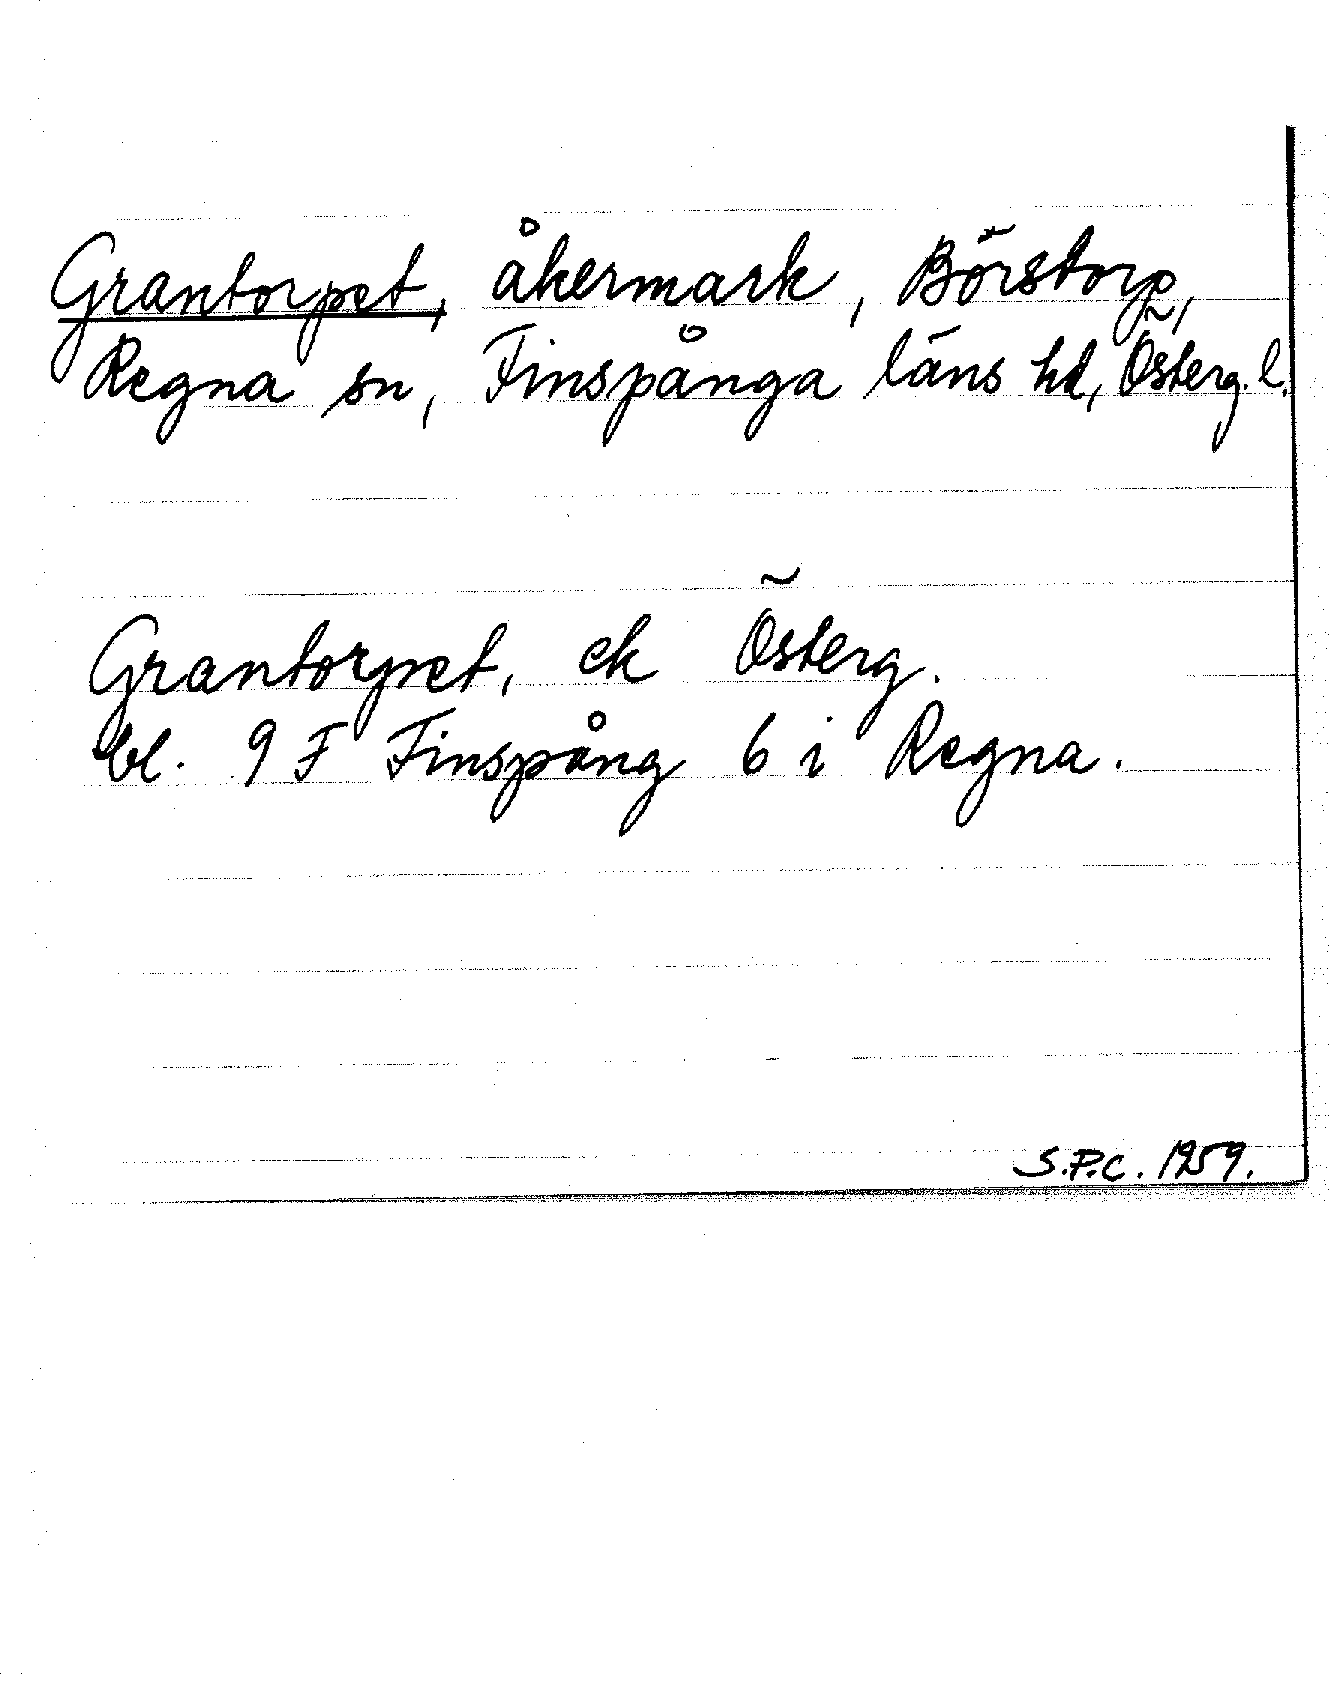 Grantorpet, åkermark, Börstorp,
Regna sn, Finspånga läns hd, Österg. l.
Grantorpet, ek Österg.
bl. 9 F Finspång 6 i Regna.
S.P.C. 1959.